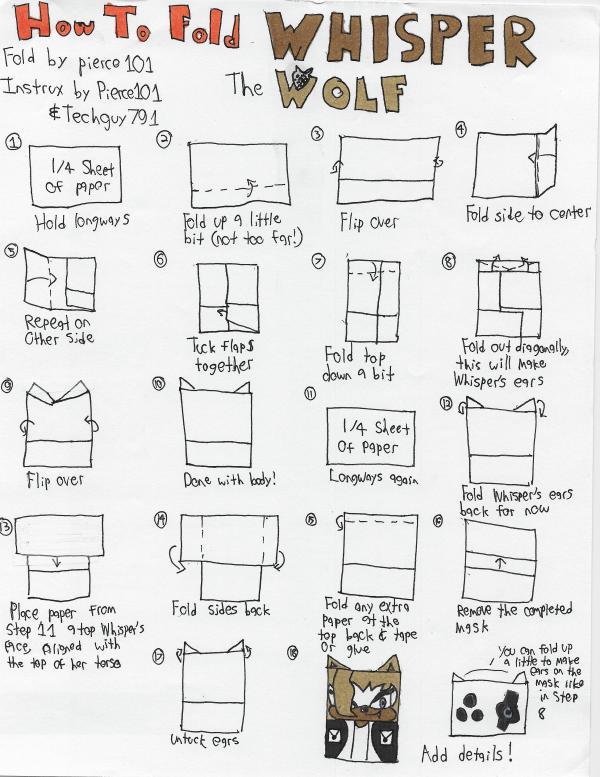 How To Fold
WHISPER
The WOLF
Fold by pierce 101
Instrux by Pierce101
& Techguy791
1
1/4 Sheet
Of paper
Hold longways
2
Fold up a little
bit (not too far!)
3
Flip over
4
Fold side to center
5
Repeat on
Other Side
6
Tuck flaps
together
7
Fold top
down a bit
8
Fold out diagonally,
this will make
Whisper's ears
9
Flip over
10
Done with body!
11
1/4 Sheet
Of Paper
Longways again
12
Fold Whisper's ears
back for now
13
Place paper from
Step 11 atop Whisper's
face, Aligned with
the top of her torso
14
Fold sides back
15
Fold any extra
paper at the
top back & tape
Or glue
16
Remove the completed
mask
17
Untuck ears
18
You can fold up
a little to make
ears on the
mask like
in Step
8
Add details!